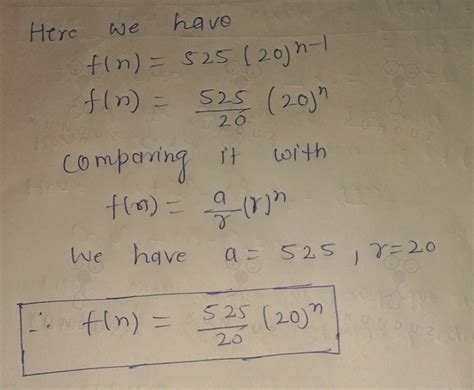 Here we have
f(n) = 525 (20)^{n-1}
f(n) = \frac{525}{20} (20)^n
comparing it with
f(n) = \frac{a}{r} (r)^n
We have a = 525, r=20
∴ f(n) = \frac{525}{20} (20)^n